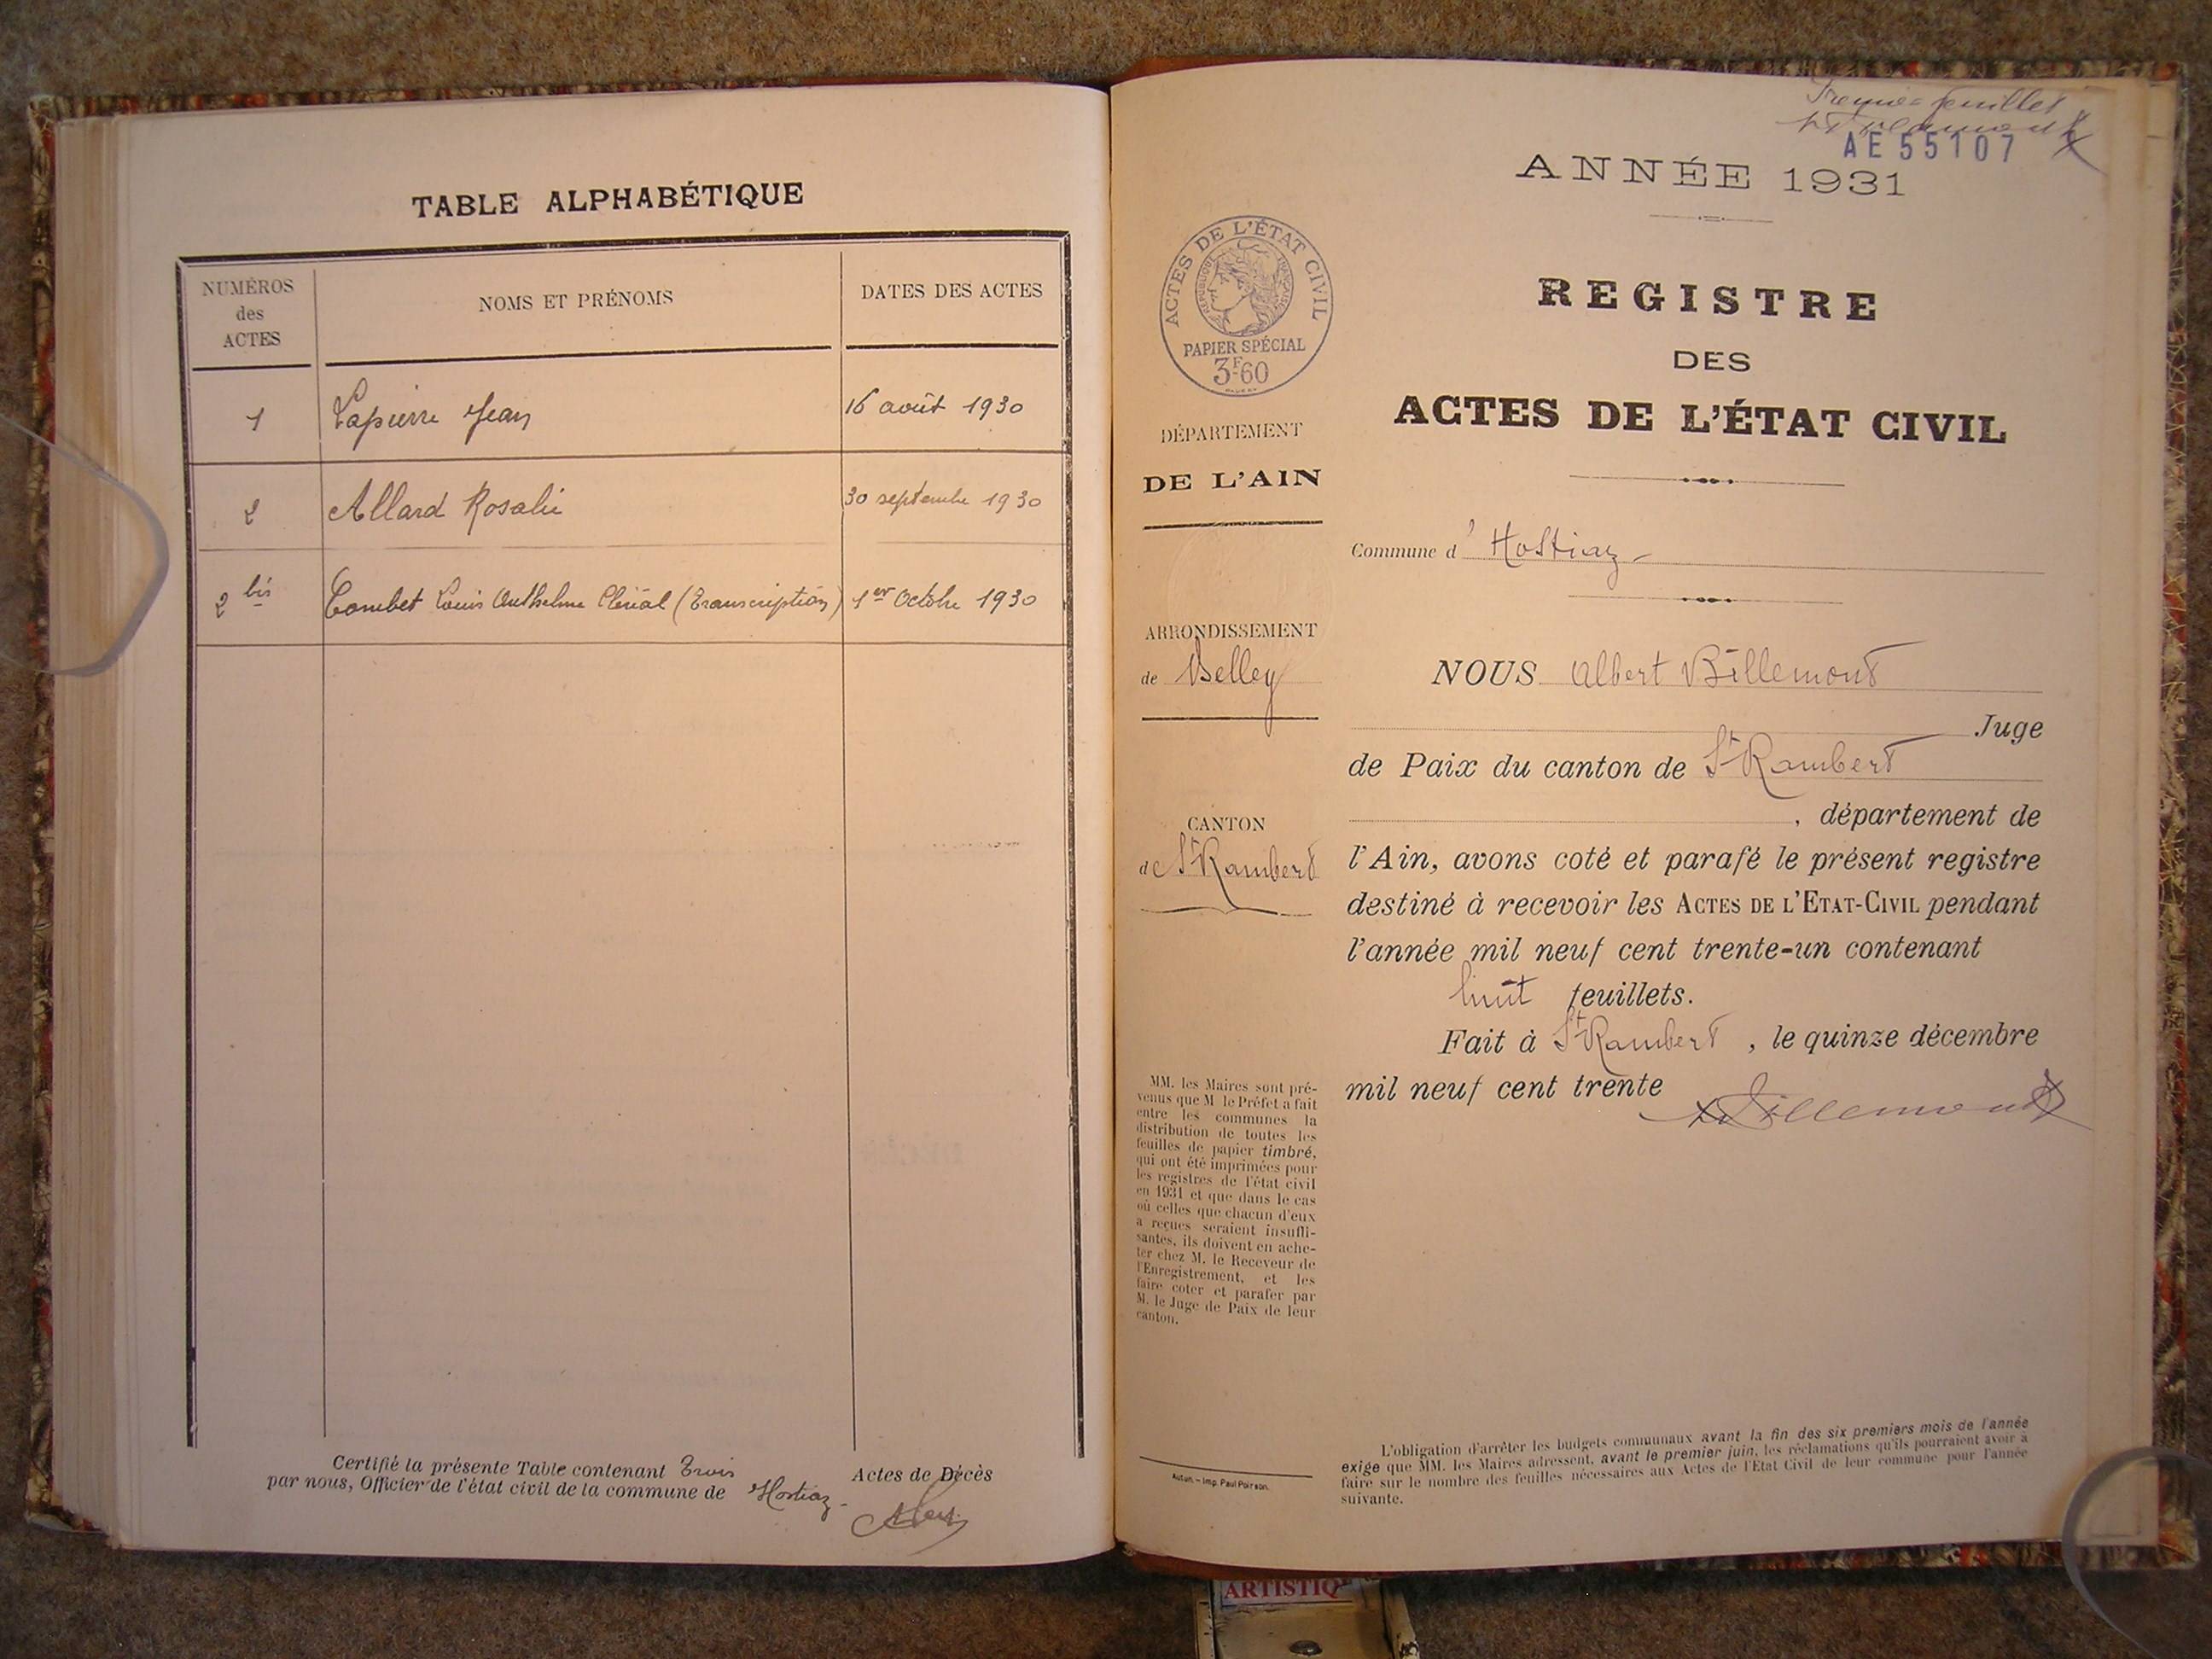 TABLE ALPHABÉTIQUE
NUMÉROS des ACTES
NOMS ET PRÉNOMS
DATES DES ACTES
1 Lapierre Jean 16 août 1930
2 Allard Rosalie 30 septembre 1930
2 bis Combet Louis Anthelme Clérial (Transcription) 1er Octobre 1930
Certifié la présente Table contenant Trois Actes de Décès
par nous, Officier de l'état civil de la commune de Hostiaz-
Premier feuillet
AE 55107
ANNÉE 1931
REGISTRE
DES
ACTES DE L'ÉTAT CIVIL
ACTES DE L'ÉTAT CIVIL
RÉPUBLIQUE FRANÇAISE
PAPIER SPÉCIAL
3F60
DÉPARTEMENT
DE L'AIN
ARRONDISSEMENT
de Belley
CANTON
de St Rambert
MM. les Maires sont pré-
venus que M le Préfet a fait
entre les communes la
distribution de toutes les
feuilles de papier timbré,
qui ont été imprimées pour
les registres de l'état civil
en 1931 et que dans le cas
où celles que chacun d'eux
a reçues seraient insuffi-
santes, ils doivent en ache-
ter chez M. le Receveur de
l'Enregistrement, et les
faire coter et parafer par
M. le Juge de Paix de leur
canton.
Autun. - Imp. Paul Poirson.
Commune d' Hostiaz -
NOUS Albert Billemont
Juge
de Paix du canton de St Rambert
, département de
l'Ain, avons coté et parafé le présent registre
destiné à recevoir les ACTES DE L'ETAT-CIVIL pendant
l'année mil neuf cent trente-un contenant
huit feuillets.
Fait à St Rambert, le quinze décembre
mil neuf cent trente
ABillemont
L'obligation d'arrêter les budgets communaux avant la fin des six premiers mois de l'année
exige que MM. les Maires adressent, avant le premier juin, les réclamations qu'ils pourraient avoir à
faire sur le nombre des feuilles nécessaires aux Actes de l'Etat Civil de leur commune pour l'année
suivante.
ARTISTIQ